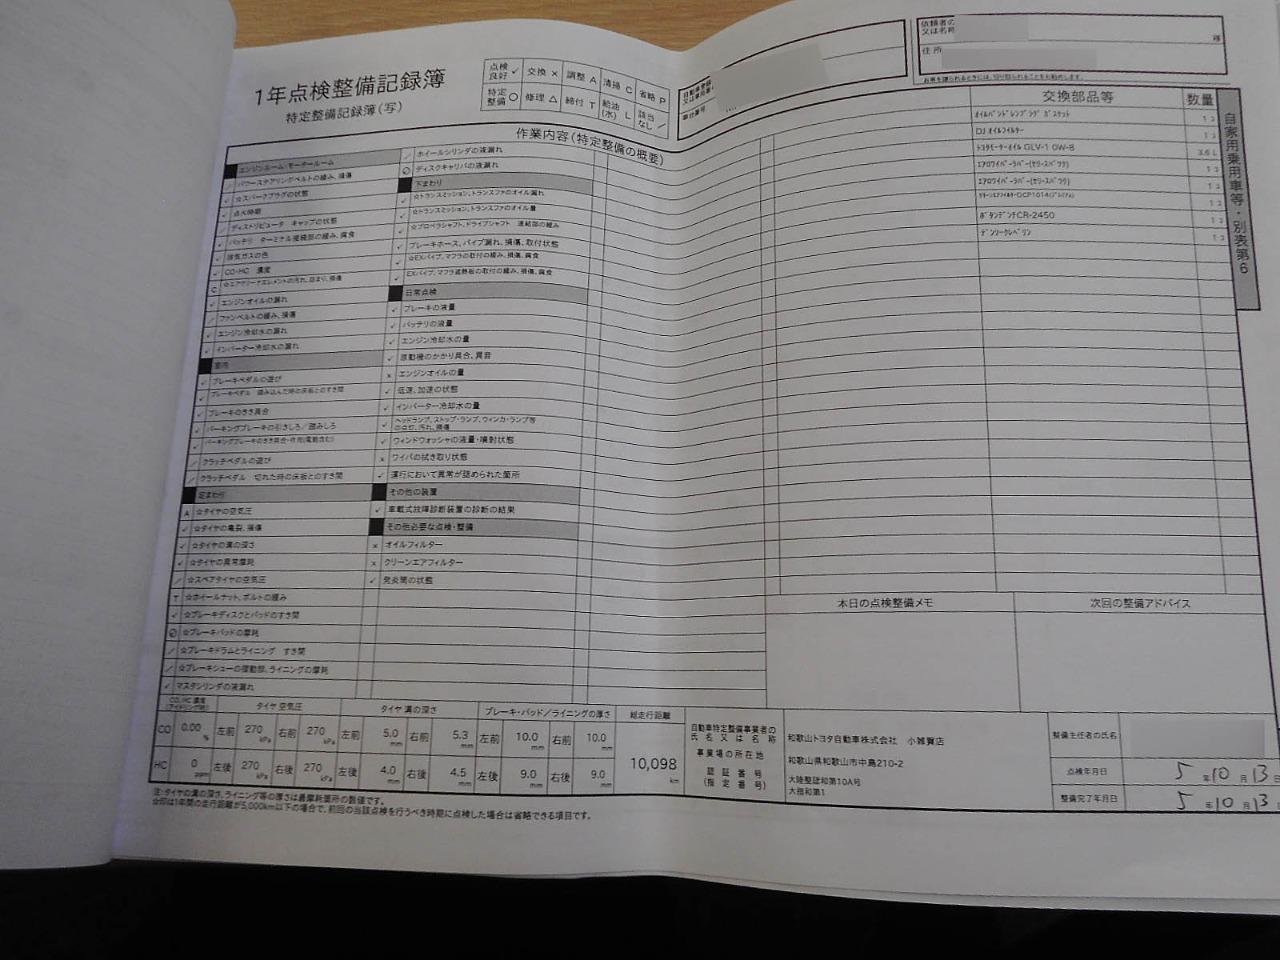 1年点検整備記録簿
特定整備記録簿(写)
点検良好 ✓ 交換 × 調整 A 清掃 C 省略 P
特定整備 ○ 修理 △ 締付 T 給油(水) L 該当なし ／
依頼者の
又は名称
様
住所
作業内容(特定整備の概要)
エンジンルーム・モータールーム
／ パワーステアリングベルトの緩み、損傷
☆スパークプラグの状態
✓ 点火時期
／ ディストリビュータ キャップの状態
✓ バッテリ ターミナル接続部の緩み、腐食
✓ 排気ガスの色
✓ CO・HC 濃度
C ☆エアクリーナエレメントの汚れ、詰まり、損傷
✓ エンジンオイルの漏れ
／ ファンベルトの緩み、損傷
✓ エンジン冷却水の漏れ
✓ インバーター冷却水の漏れ
室内
✓ ブレーキペダルの遊び
✓ ブレーキペダル 踏み込んだ時の床板とのすき間
✓ ブレーキのきき具合
✓ パーキングブレーキの引きしろ/踏みしろ
✓ パーキングブレーキのきき具合・作用(電動含む)
／ クラッチペダルの遊び
／ クラッチペダル 切れた時の床板とのすき間
足まわり
A ☆タイヤの空気圧
✓ ☆タイヤの亀裂、損傷
✓ ☆タイヤの溝の深さ
✓ ☆タイヤの異常摩耗
／ ☆スペアタイヤの空気圧
T ☆ホイールナット、ボルトの緩み
✓ ☆ブレーキディスクとパッドのすき間
☆ブレーキパッドの摩耗
／ ☆ブレーキドラムとライニング すき間
／ ☆ブレーキシューの摺動部、ライニングの摩耗
✓ マスタシリンダの液漏れ
／ ホイールシリンダの液漏れ
ディスクキャリパの液漏れ
下まわり
✓ ☆トランスミッション、トランスファのオイル漏れ
☆トランスミッション、トランスファのオイル量
✓ ☆プロペラシャフト、ドライブシャフト 連結部の緩み
✓ ブレーキホース、パイプ漏れ、損傷、取付状態
✓ ☆EXパイプ、マフラの取付の緩み、損傷、腐食
✓ EXパイプ、マフラ遮熱板の取付の緩み、損傷、腐食
日常点検
✓ ブレーキの液量
✓ バッテリの液量
✓ エンジン冷却水の量
✓ 原動機のかかり具合、異音
× エンジンオイルの量
✓ 低速、加速の状態
✓ インバーター冷却水の量
✓ ヘッドランプ、ストップ・ランプ、ウィンカ・ランプ等
の点灯、汚れ、損傷
✓ ウィンドウォッシャの液量・噴射状態
× ワイパの拭き取り状態
✓ 運行において異常が認められた箇所
その他の装置
✓ 車載式故障診断装置の診断の結果
その他必要な点検・整備
× オイルフィルター
× クリーンエアフィルター
✓ 発炎筒の状態
交換部品等 数量
ｵｲﾙﾊﾟﾝﾄﾞﾚﾝﾌﾟﾗｸﾞ ｶﾞｽｹｯﾄ 1
DJ ｵｲﾙﾌｨﾙﾀｰ 1
ﾄﾖﾀﾓｰﾀｰｵｲﾙ GLV-1 0W-8 3.6 L
ｴｱﾛﾜｲﾊﾟｰﾗﾊﾞｰ(ｾﾘｰｽﾊﾞﾂｸﾞ) 1
ｴｱﾛﾜｲﾊﾟｰﾗﾊﾞｰ(ｾﾘｰｽﾊﾞﾂｸﾞ) 1
ｸﾘｰﾝｴｱﾌｨﾙﾀｰDCP1014(ﾌﾟﾚﾐｱﾑ) 1
ﾎﾞﾀﾝﾃﾞﾝﾁCR-2450 1
ﾃﾞﾝｿｰｸﾚﾍﾞﾘﾝ 1
自家用乗用車等・別表第6
本日の点検整備メモ 次回の整備アドバイス
CO、HC 濃度
(アイドリング時) タイヤ空気圧 タイヤ溝の深さ ブレーキ・パッド/ライニングの厚さ 総走行距離
CO 0.00 % 左前 270 kPa 右前 270 kPa 左前 5.0 mm 右前 5.3 mm 左前 10.0 mm 右前 10.0 mm
HC 0 ppm 左後 270 kPa 右後 270 kPa 左後 4.0 mm 右後 4.5 mm 左後 9.0 mm 右後 9.0 mm
10,098 km
自動車特定整備事業者の
氏名又は名称 和歌山トヨタ自動車株式会社 小雑賀店
事業場の所在地 和歌山県和歌山市中島210-2
認証番号 大陸整認和第10A号
(指定番号) 大指和第1
整備主任者の氏名
点検年月日 5 年 10 月 13 日
整備完了年月日 5 年 10 月 13 日
注:タイヤの溝の深さ、ライニング等の厚さは最摩耗箇所の数値です。
☆印は1年間の走行距離が5,000km以下の場合で、前回の当該点検を行うべき時期に点検した場合は省略できる項目です。